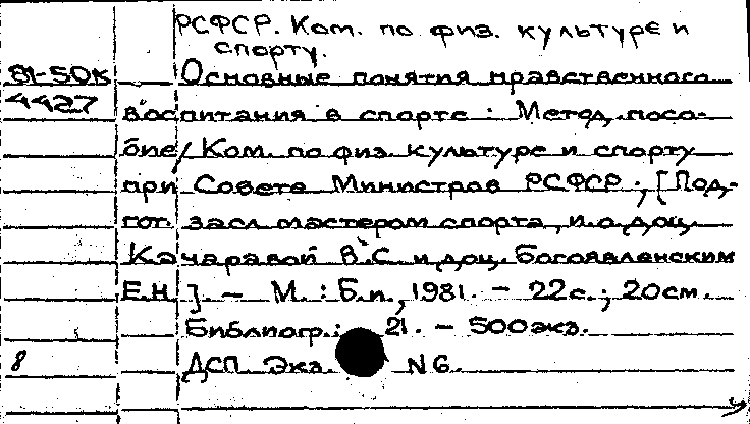 РСФСР. Ком. по физ. культуре и
спорту.
81-50к Основные понятия нравственного
4427 воспитания в спорте : Метод. посо-
бие / Ком. по физ. культуре и спорту
при Совете Министров РСФСР ; [Под-
гот. засл. мастером спорта, и.о. доц.
Качаравой В.С. и доц. Богоявленским
Е.Н.]. – М. : Б.и., 1981. – 22 с. ; 20 см.
Библиогр.: 21. – 500 экз.
8 ДСП Экз. N 6.